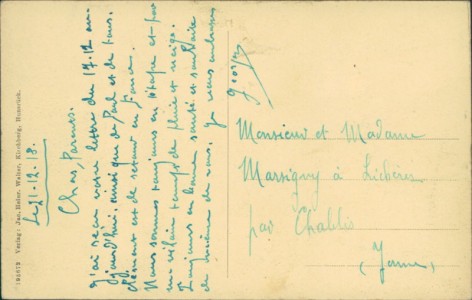 Le 21-12-18.
Chers Parents.
J'ai reçu votre lettre du 17.12 au-
jourd'hui, ainsi que de Paul et de tous.
Clément est de retour en France.
Nous sommes toujours en étape et par
un vilain temps de pluie et neige.
Toujours en bonne santé et souhaite
de même de vous. Je vous embrasse
Georges
Monsieur et Madame
Marsigny à Lichères
par Chablis
(Yonne)
Verlag: Jac. Heinr. Walter, Kirchberg, Hunsrück.